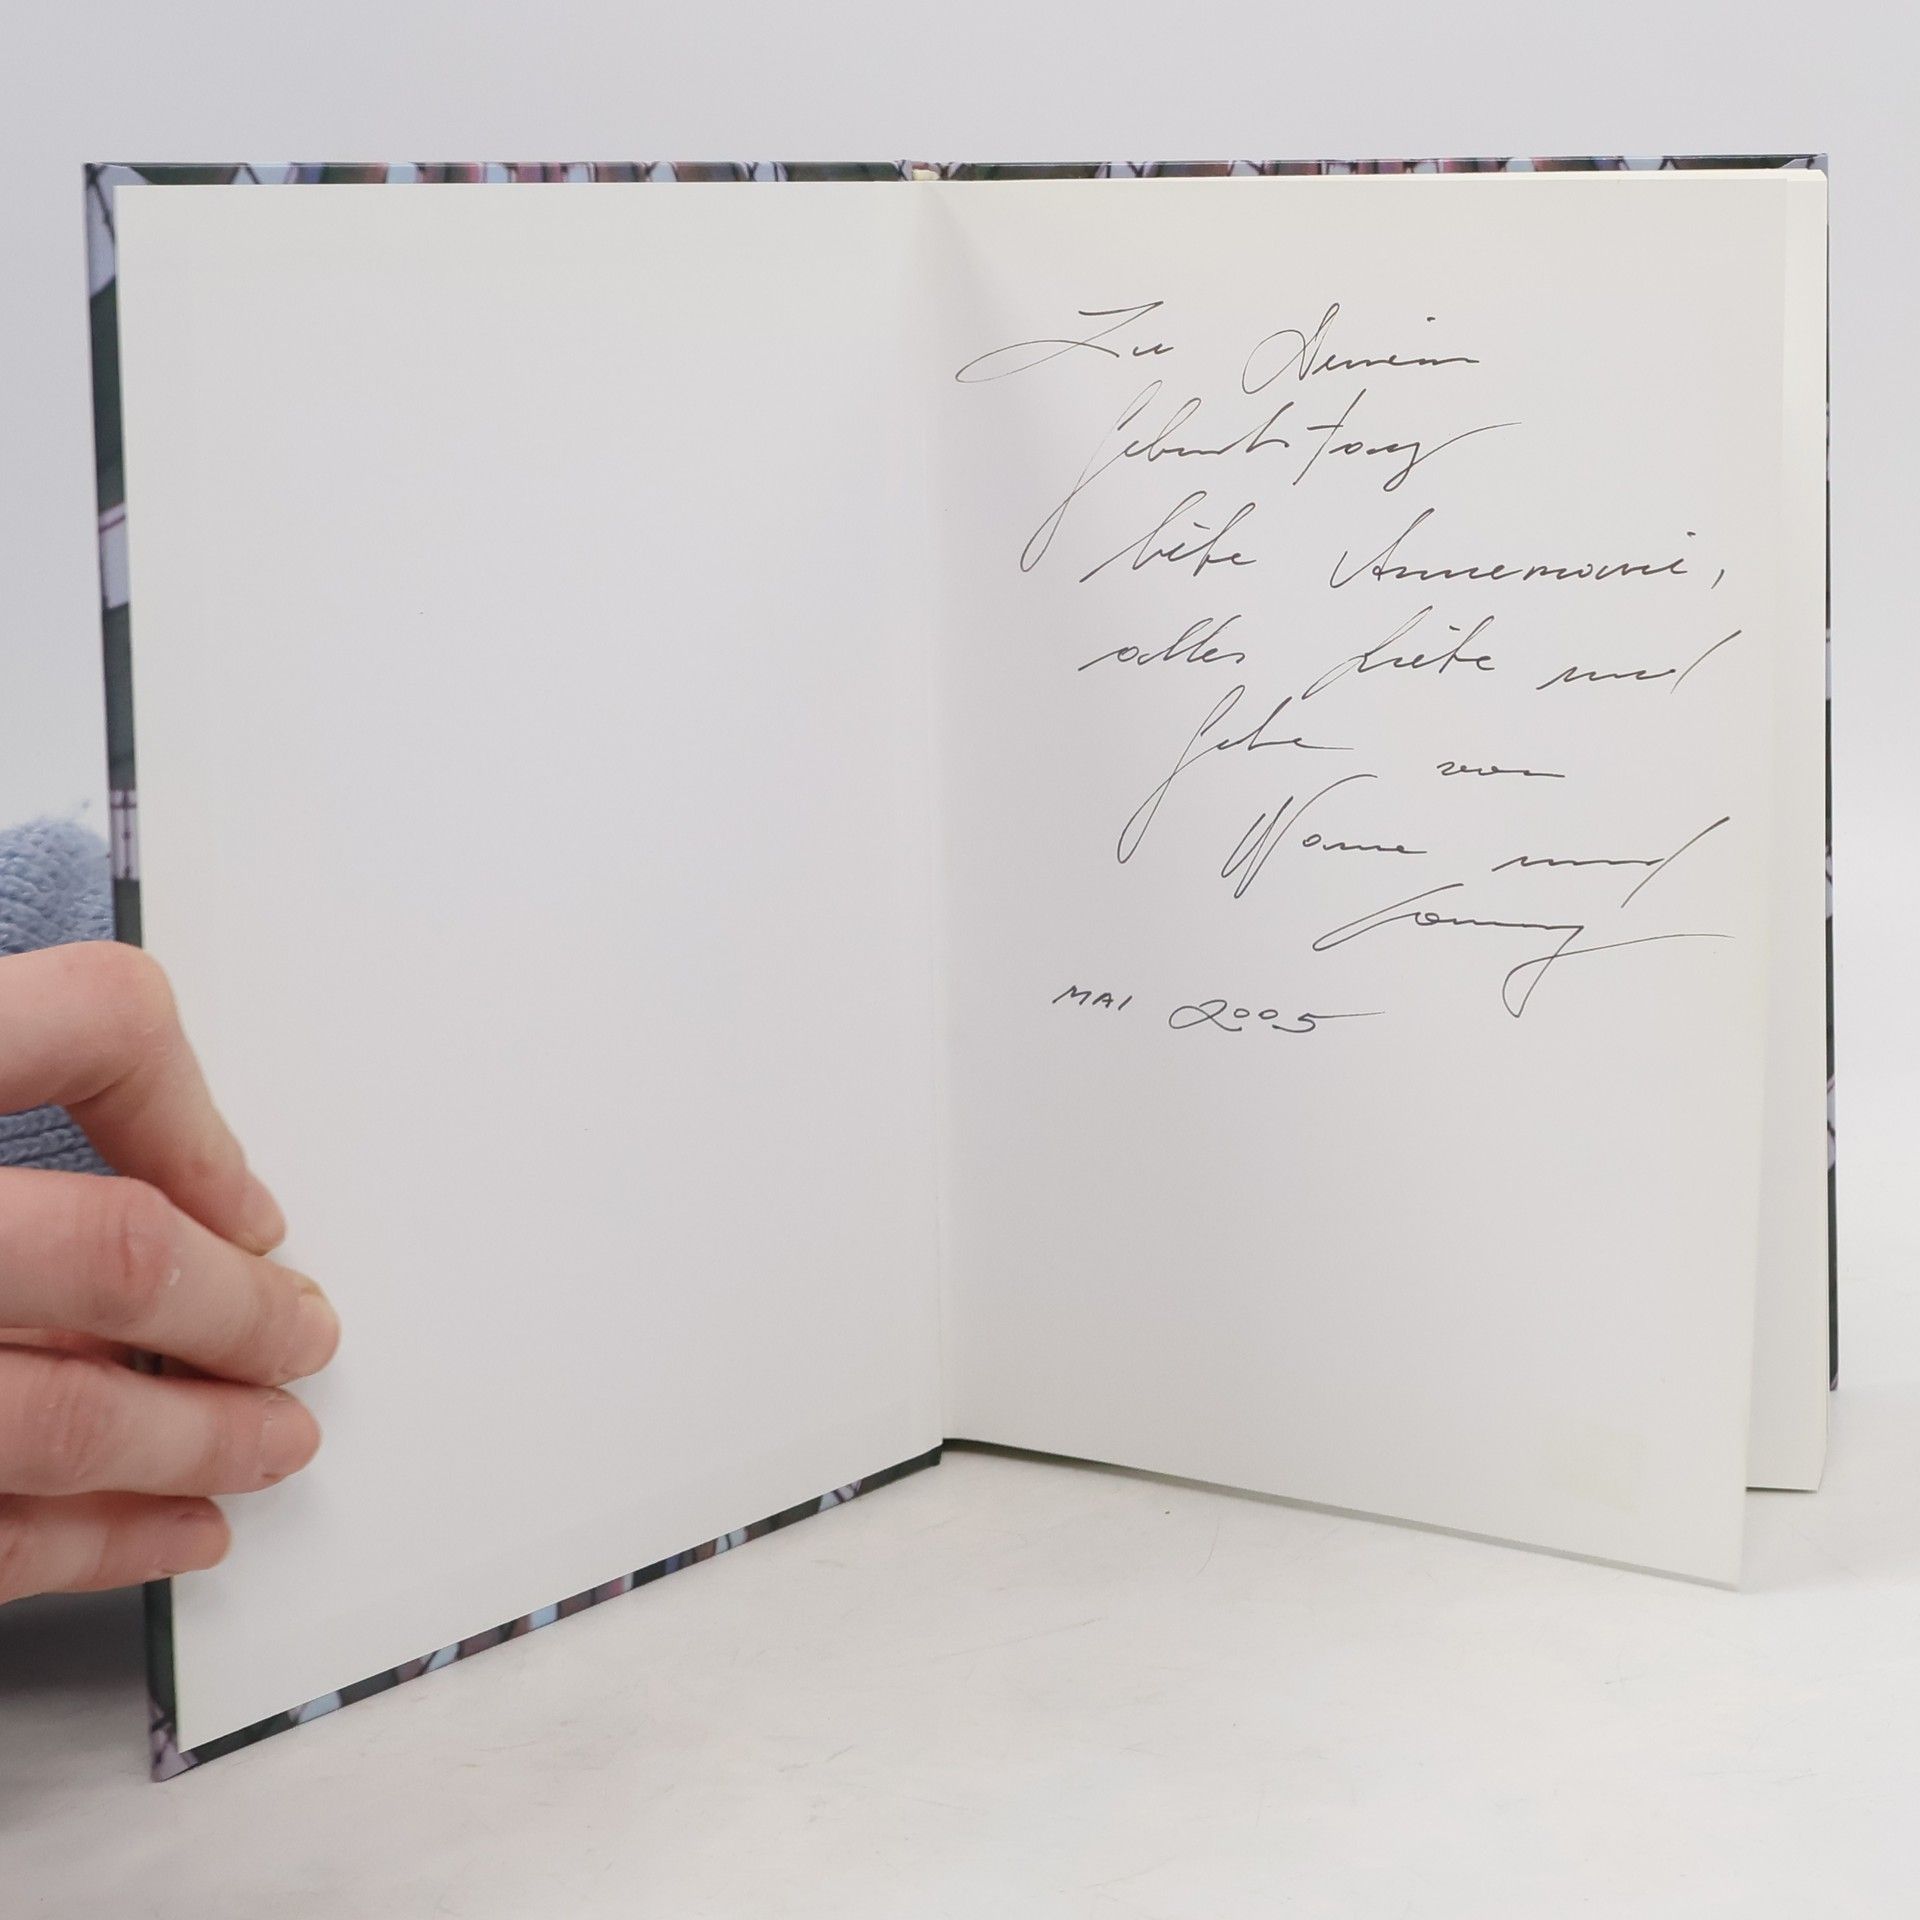 Zu Deinem
Geburtstag
liebe Annemarie,
alles Liebe und
Gute von
und
MAI 2005